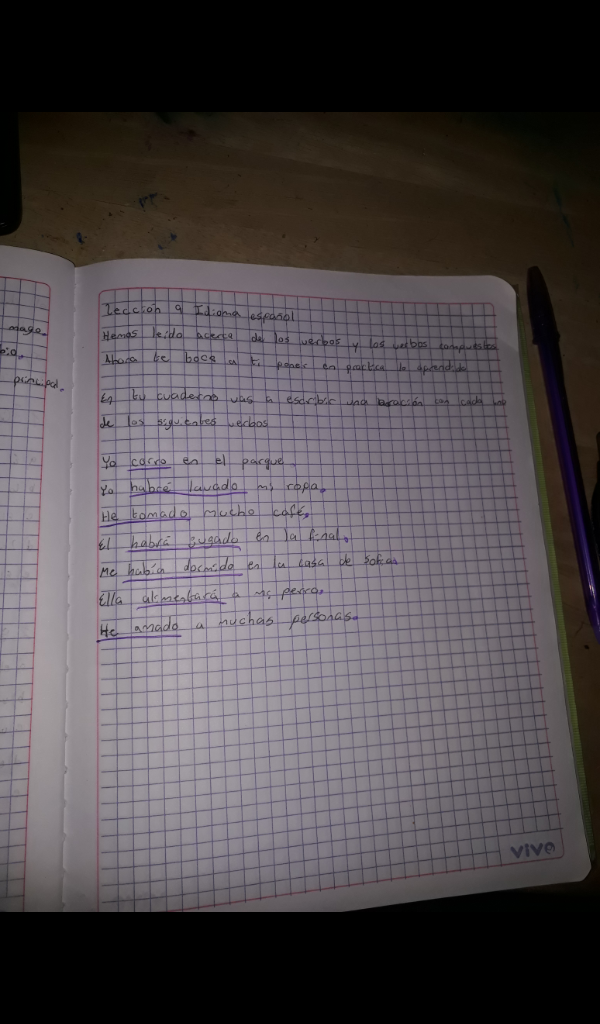 mago.
bio.
principal.
Lección 9 Idioma español
Hemos leído acerca de los verbos y los verbos compuestos
Ahora te boce a ti poner en practica lo aprendido
En tu cuaderno vas a escribir una oración con cada uno
de los siguientes verbos
Yo corro en el parque.
Yo habré lavado mi ropa.
He tomado mucho café.
El habrá jugado en la final.
Me había dormido en la casa de
Ella alimentará a mi perro.
He amado a muchas personas.
vivo